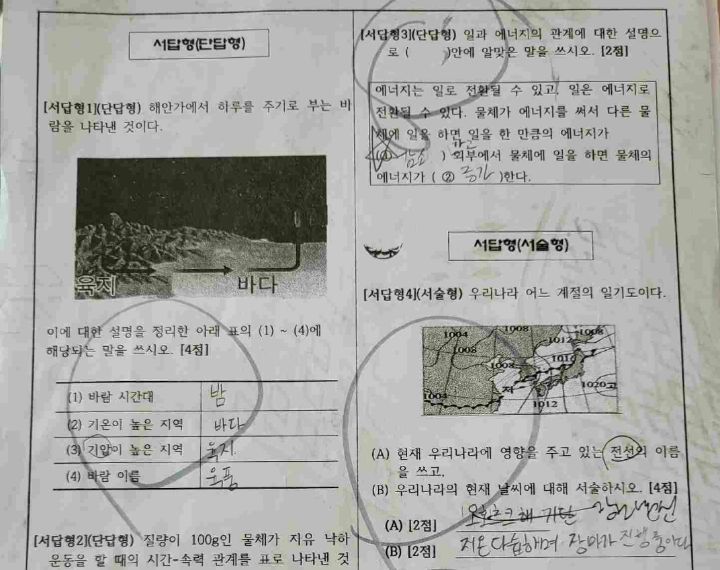 서답형(단답형)
[서답형1](단답형) 해안가에서 하루를 주기로 부는 바
람을 나타낸 것이다.
육지
바다
이에 대한 설명을 정리한 아래 표의 (1) ~ (4)에
해당되는 말을 쓰시오. [4점]
(1) 바람 시간대 밤
(2) 기온이 높은 지역 바다
(3) 기압이 높은 지역 육지
(4) 바람 이름 육풍
[서답형2](단답형) 질량이 100g인 물체가 자유 낙하
운동을 할 때의 시간-속력 관계를 표로 나타낸 것
[서답형3](단답형) 일과 에너지의 관계에 대한 설명으
로 ( )안에 알맞은 말을 쓰시오. [2점]
에너지는 일로 전환될 수 있고, 일은 에너지로
전환될 수 있다. 물체가 에너지를 써서 다른 물
체에 일을 하면 일을 한 만큼의 에너지가
(① 감소 ) 외부에서 물체에 일을 하면 물체의
에너지가 ( ② 증가 )한다.
서답형(서술형)
[서답형4](서술형) 우리나라 어느 계절의 일기도이다.
1004
1008
1008
1012
1008
1008
1016
1004
저
1020
고
1012
(A) 현재 우리나라에 영향을 주고 있는 전선의 이름
을 쓰고,
(B) 우리나라의 현재 날씨에 대해 서술하시오. [4점]
(A) [2점] 장마전선
(B) [2점] 저온다습하며 장마가 진행중이다